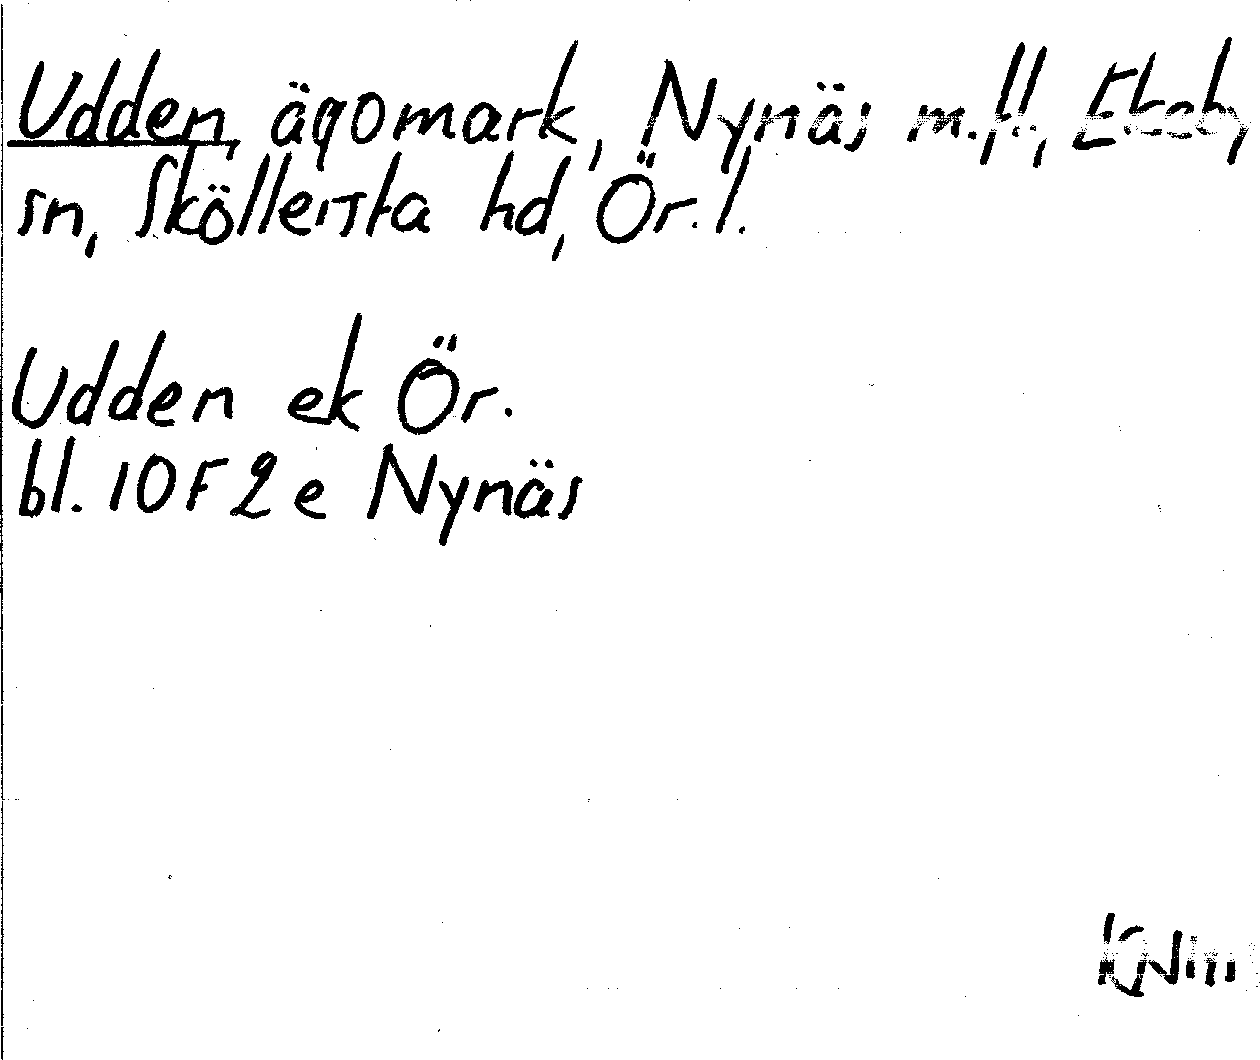 Udden, ägomark, Nynäs m.fl., Ekeby
sn, Sköllersta hd, Ör.l.
Udden ek Ör.
bl. 10F 2e Nynäs